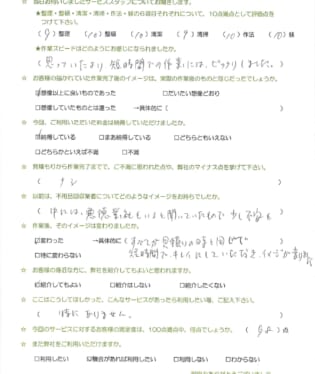 お伺いしましたサービススタッフについてお聞きします。
★整理・整頓・清潔・清掃・作法・躾の6項目それぞれについて、10点満点として評価点を
つけて下さい。
(9)整理 (10)整頓 ( )清潔 (9)清掃 (10)作法 (10)躾
★作業スピードはどのようにお感じになられましたか。
(思っていたより短時間での作業には、びっくりしました。)
☆ お客様の描かれていた作業完了後のイメージは、実際の作業後のものと合致でしたでしょうか。
☑想像以上に良いものであった □だいたい想像どおり
□想像していたものとは違った →具体的に( )
☆ 今回、ご利用いただいた料金は納得していただけましたか。
☑納得している □まあ納得している □どちらともいえない
□どちらかといえば不満 □不満
☆ 見積もりから作業完了まで、ご不満に思われた点や、弊社のマイナス点を挙げて下さい。
(ナシ )
☆ 以前は、不用品回収業者についてどのようなイメージをお持ちでしたか。
(中には、悪徳業者もいると聞いていたので少し不安 )
☆ 作業後、そのイメージは変わりましたか。
☑変わった →具体的に(すべてが見積りの時と同じで
□特に変わらない 短時間で、キレイにしていただき、イメージが
☆ お客様の身近な方に、弊社を紹介してもよいと思われますか。
☑紹介してもよい □紹介はしない □紹介したくない
☆ ここはこうしてほしかった、こんなサービスがあったら利用したい等、ご記入下さい。
(特にありません。 )
☆ 今回のサービスに対するお客様の満足度は、100点満点中、何点でしょうか。 (98)点
☆ また弊社をご利用いただけますか。
□利用したい ☑機会があれば利用したい □利用しない □わからない